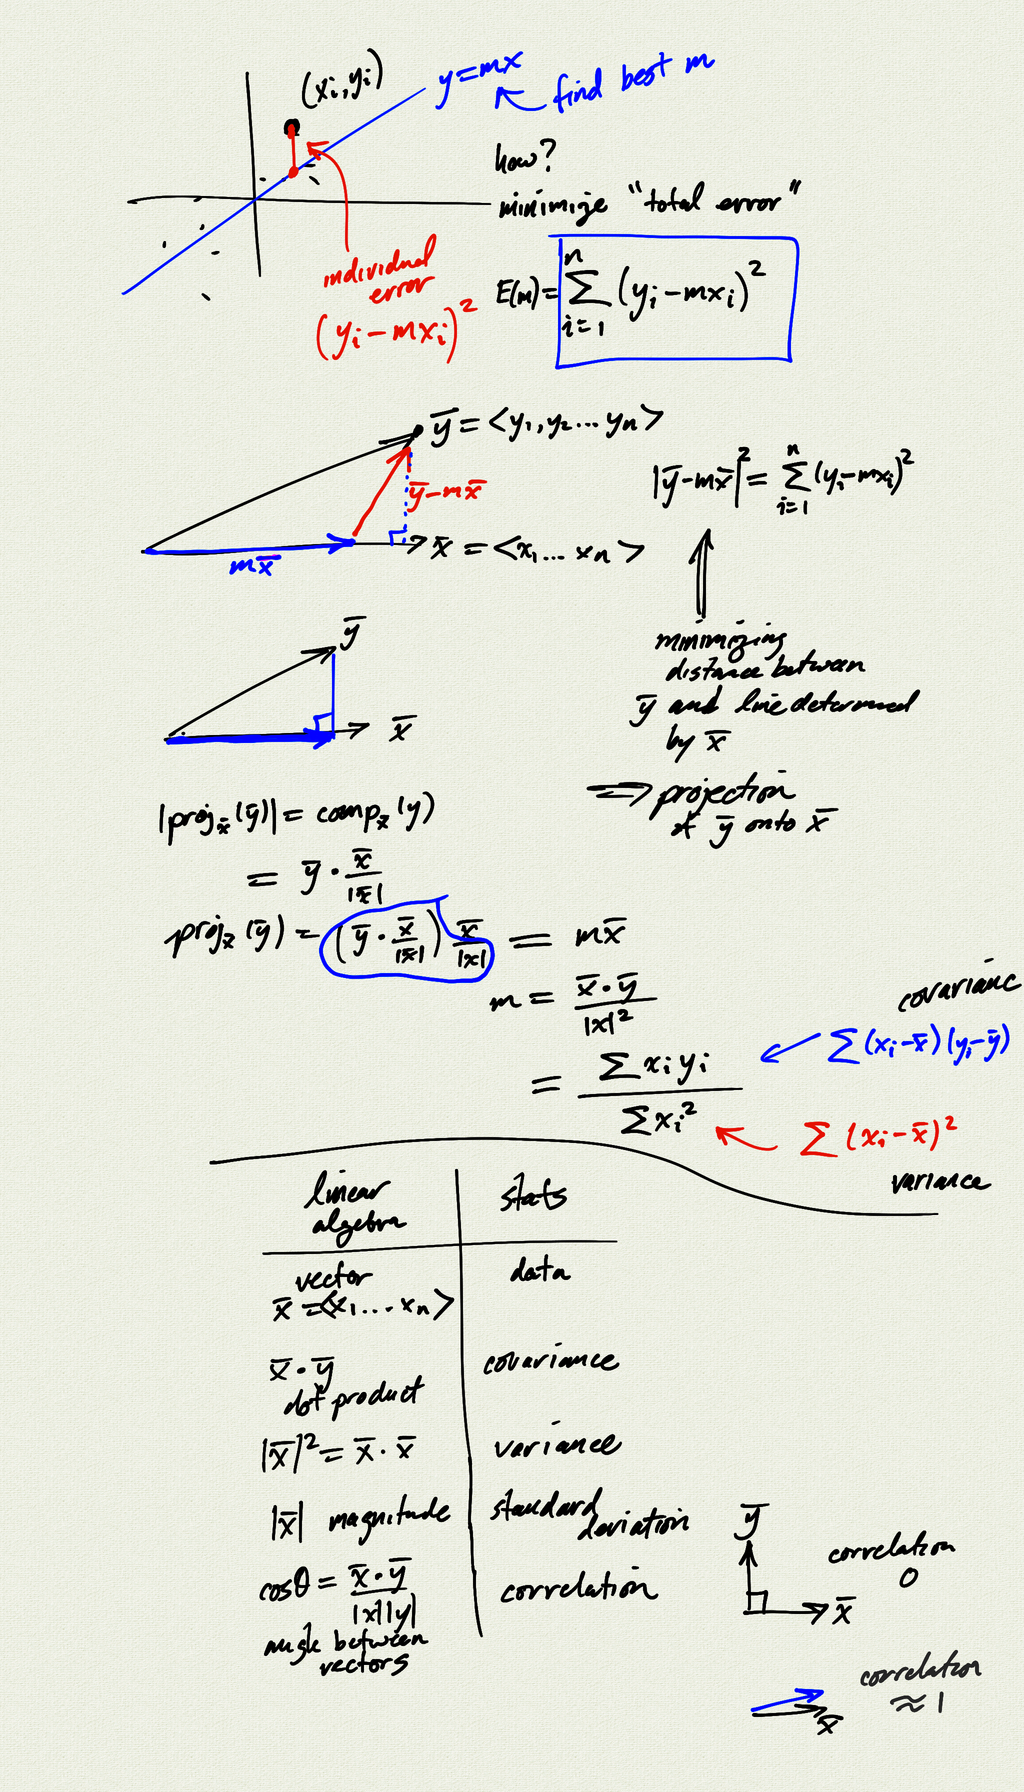 (xᵢ, yᵢ)
y = mx
find best m
how?
minimize "total error"
individual
error
(yᵢ − mxᵢ)²
E(m) = ∑ᵢ₌₁ⁿ (yᵢ − mxᵢ)²
y̅ = <y₁, y₂ ... yₙ>
y̅ − mx̅
|y̅ − mx̅|² = ∑ᵢ₌₁ⁿ (yᵢ − mxᵢ)²
mx̅
x̅ = <x₁ ... xₙ>
minimizing
distance between
y̅ and line determined
by x̅
⇒ projection
of y̅ onto x̅
y̅
x̅
|proj_x̅ (y̅)| = comp_x̅ (y)
= y̅ · x̅/|x̅|
proj_x̅ (y̅) = (y̅ · x̅/|x̅|) x̅/|x| = mx̅
m = x̅ · y̅ / |x|²
= ∑ xᵢ yᵢ / ∑ xᵢ²
covarianc
∑ (xᵢ − x̅)(yᵢ − y̅)
∑ (xᵢ − x̅)²
variance
linear
algebra
stats
vector
x̅ = <x₁ ... xₙ>
data
x̅ · y̅
dot product
covariance
|x̅|² = x̅ · x̅
variance
|x̅| magnitude
standard
deviation
cosθ = x̅ · y̅ / |x||y|
angle between
vectors
correlation
y̅
x̅
correlation
0
x̅
correlation
≈ 1